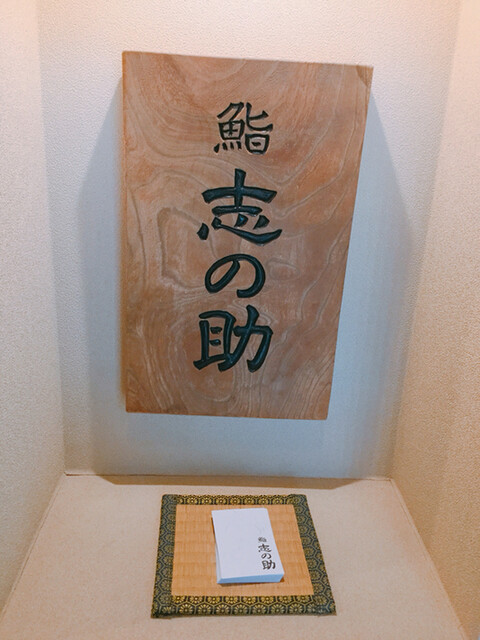 鮨
志の助
鮨 志の助